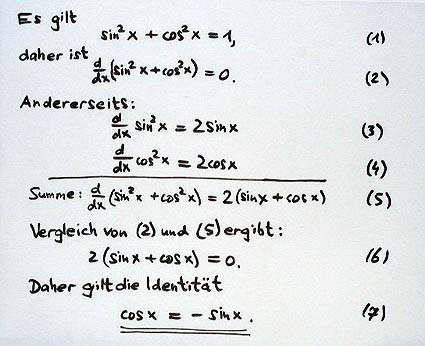 Es gilt
sin²x + cos²x = 1, (1)
daher ist
d/dx (sin²x + cos²x) = 0. (2)
Andererseits:
d/dx sin²x = 2sinx (3)
d/dx cos²x = 2cosx (4)
Summe: d/dx (sin²x + cos²x) = 2(sinx + cosx) (5)
Vergleich von (2) und (5) ergibt:
2(sinx + cosx) = 0. (6)
Daher gilt die Identität
cosx = - sinx. (7)